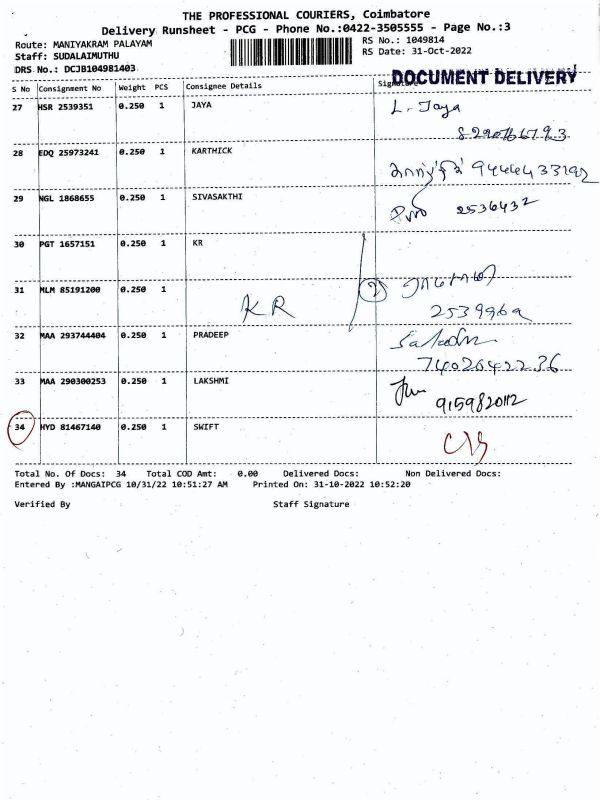 THE PROFESSIONAL COURIERS, Coimbatore
Delivery Runsheet - PCG - Phone No.:0422-3505555 - Page No.:3
Route: MANIYAKRAM PALAYAM
RS No.: 1049814
Staff: SUDALAIMUTHU
RS Date: 31-Oct-2022
DRS No.: DCJB104981403
DOCUMENT DELIVERY
S No Consignment No Weight PCS Consignee Details Signature
27 HSR 2539351 0.250 1 JAYA L. Jaya
28 EDQ 25973241 0.250 1 KARTHICK 9444433192
29 NGL 1868655 0.250 1 SIVASAKTHI 2536432
30 PGT 1657151 0.250 1 KR
31 MLM 85191200 0.250 1 KR 2
253996a
32 MAA 293744404 0.250 1 PRADEEP
7402642236
33 MAA 290300253 0.250 1 LAKSHMI
9159820112
34 HYD 81467140 0.250 1 SWIFT
Total No. Of Docs: 34 Total COD Amt: 0.00 Delivered Docs: Non Delivered Docs:
Entered By :MANGAIPCG 10/31/22 10:51:27 AM Printed On: 31-10-2022 10:52:20
Verified By Staff Signature